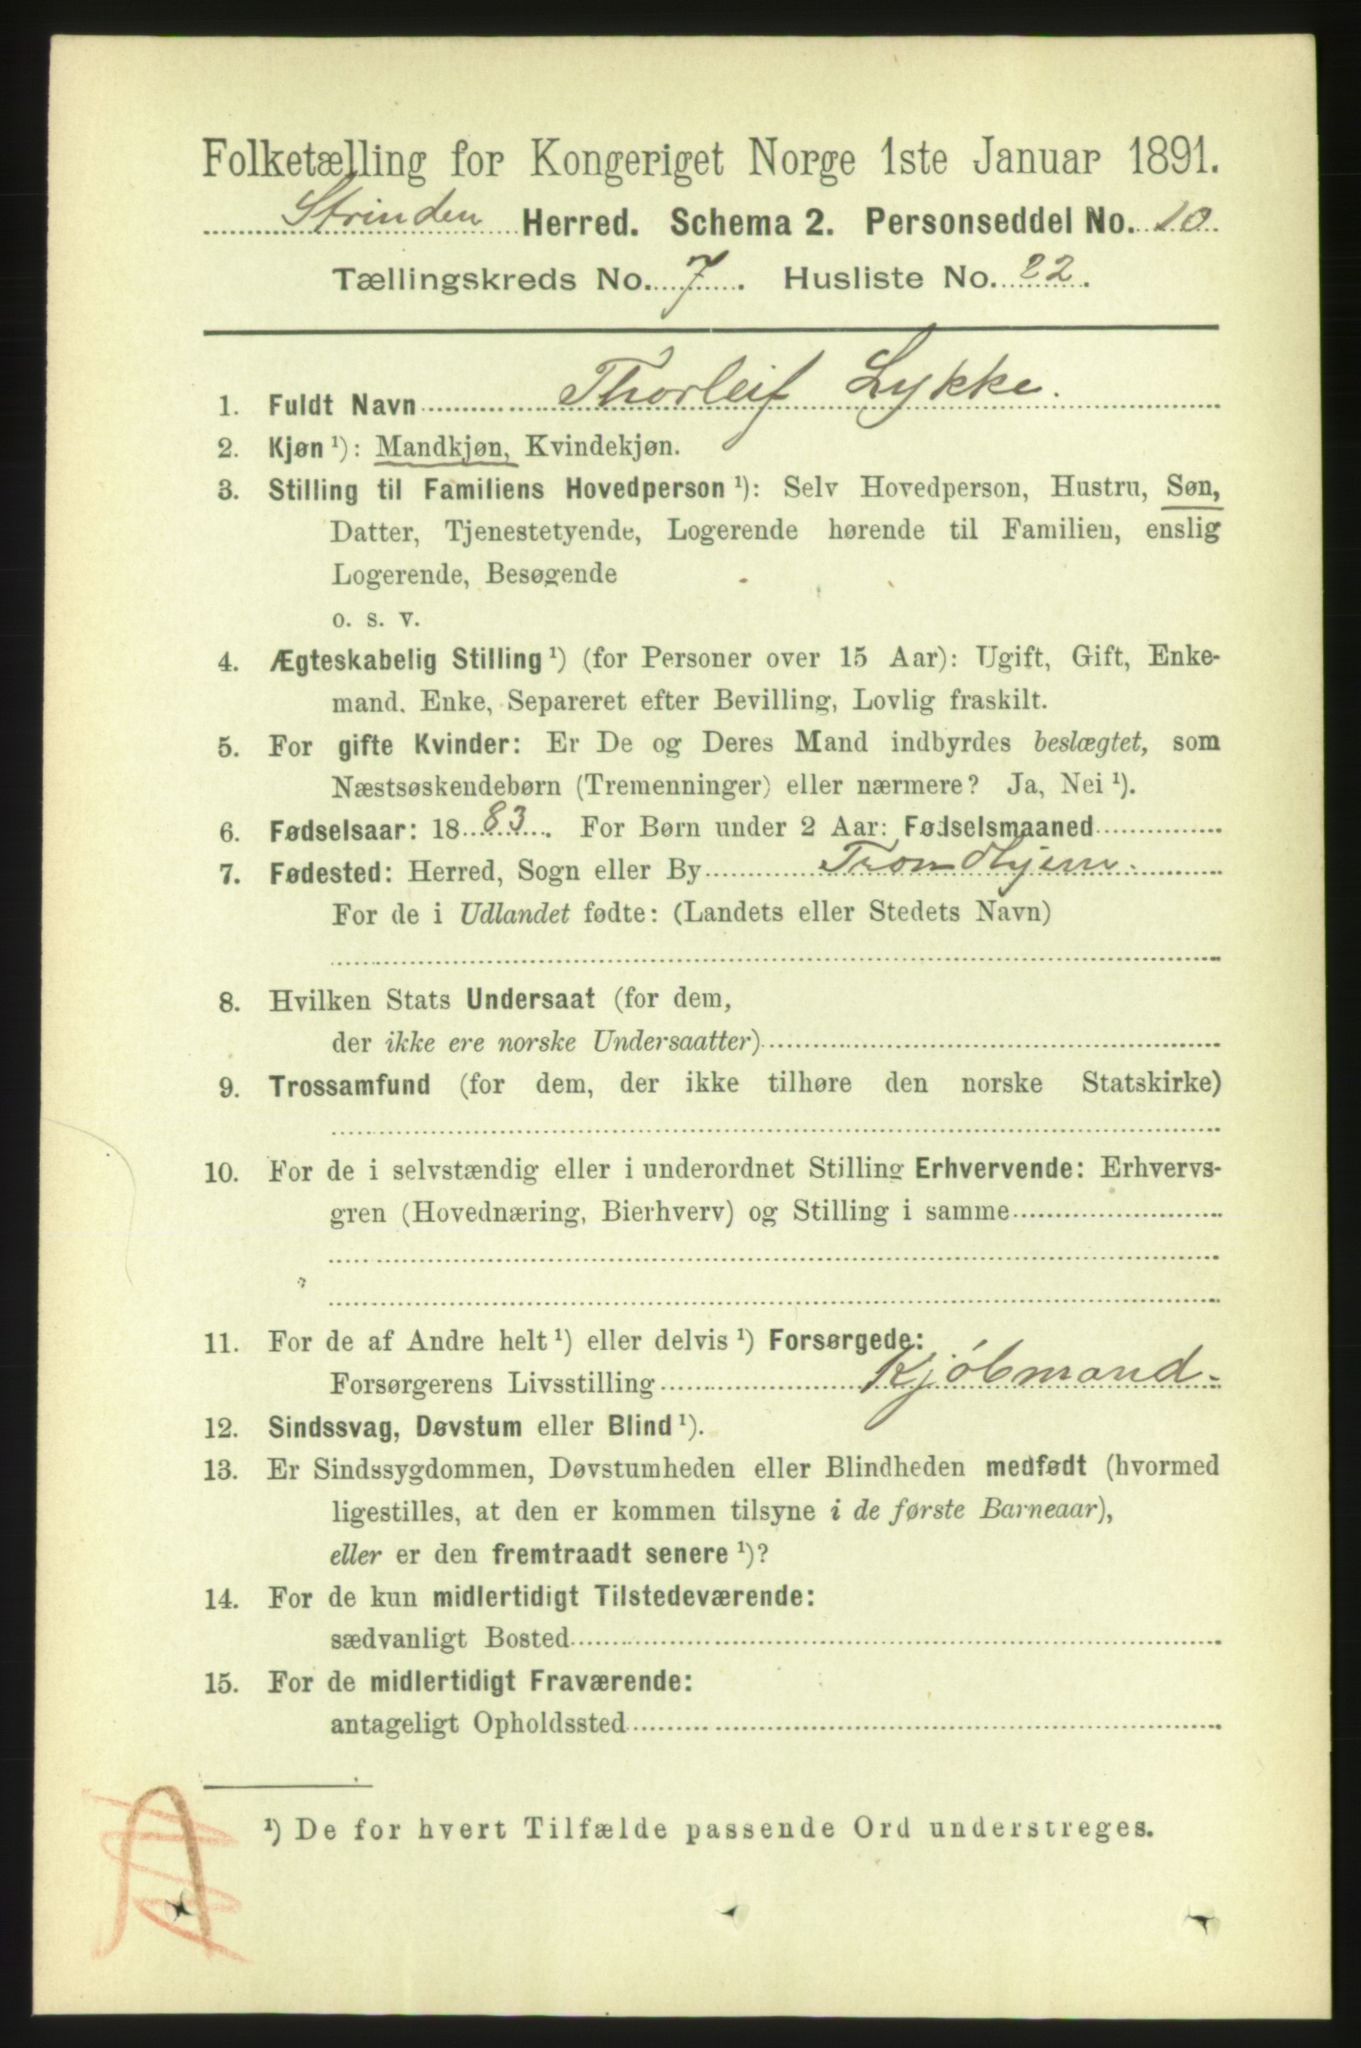 Folketælling for Kongeriget Norge 1ste Januar 1891.
Strinden Herred. Schema 2. Personseddel No. 10.
Tællingskreds No. 7. Husliste No. 22.
1. Fuldt Navn Thorleif Lykke.
2. Kjøn ¹): Mandkjøn, Kvindekjøn.
3. Stilling til Familiens Hovedperson ¹): Selv Hovedperson, Hustru, Søn,
Datter, Tjenestetyende, Logerende hørende til Familien, enslig
Logerende, Besøgende
o. s. v.
4. Ægteskabelig Stilling ¹) (for Personer over 15 Aar): Ugift, Gift, Enke-
mand. Enke, Separeret efter Bevilling, Lovlig fraskilt.
5. For gifte Kvinder: Er De og Deres Mand indbyrdes beslægtet, som
Næstsøskendebørn (Tremenninger) eller nærmere? Ja, Nei ¹).
6. Fødselsaar: 1883. For Børn under 2 Aar: Fødselsmaaned
7. Fødested: Herred, Sogn eller By Trondhjem.
For de i Udlandet fødte: (Landets eller Stedets Navn)
8. Hvilken Stats Undersaat (for dem,
der ikke ere norske Undersaatter)
9. Trossamfund (for dem, der ikke tilhøre den norske Statskirke)
10. For de i selvstændig eller i underordnet Stilling Erhvervende: Erhvervs-
gren (Hovednæring, Bierhverv) og Stilling i samme
11. For de af Andre helt ¹) eller delvis ¹) Forsørgede:
Forsørgerens Livsstilling Kjöbmand.
12. Sindssvag, Døvstum eller Blind ¹).
13. Er Sindssygdommen, Døvstumheden eller Blindheden medfødt (hvormed
ligestilles, at den er kommen tilsyne i de første Barneaar),
eller er den fremtraadt senere ¹)?
14. For de kun midlertidigt Tilstedeværende:
sædvanligt Bosted
15. For de midlertidigt Fraværende:
antageligt Opholdssted
¹) De for hvert Tilfælde passende Ord understreges.